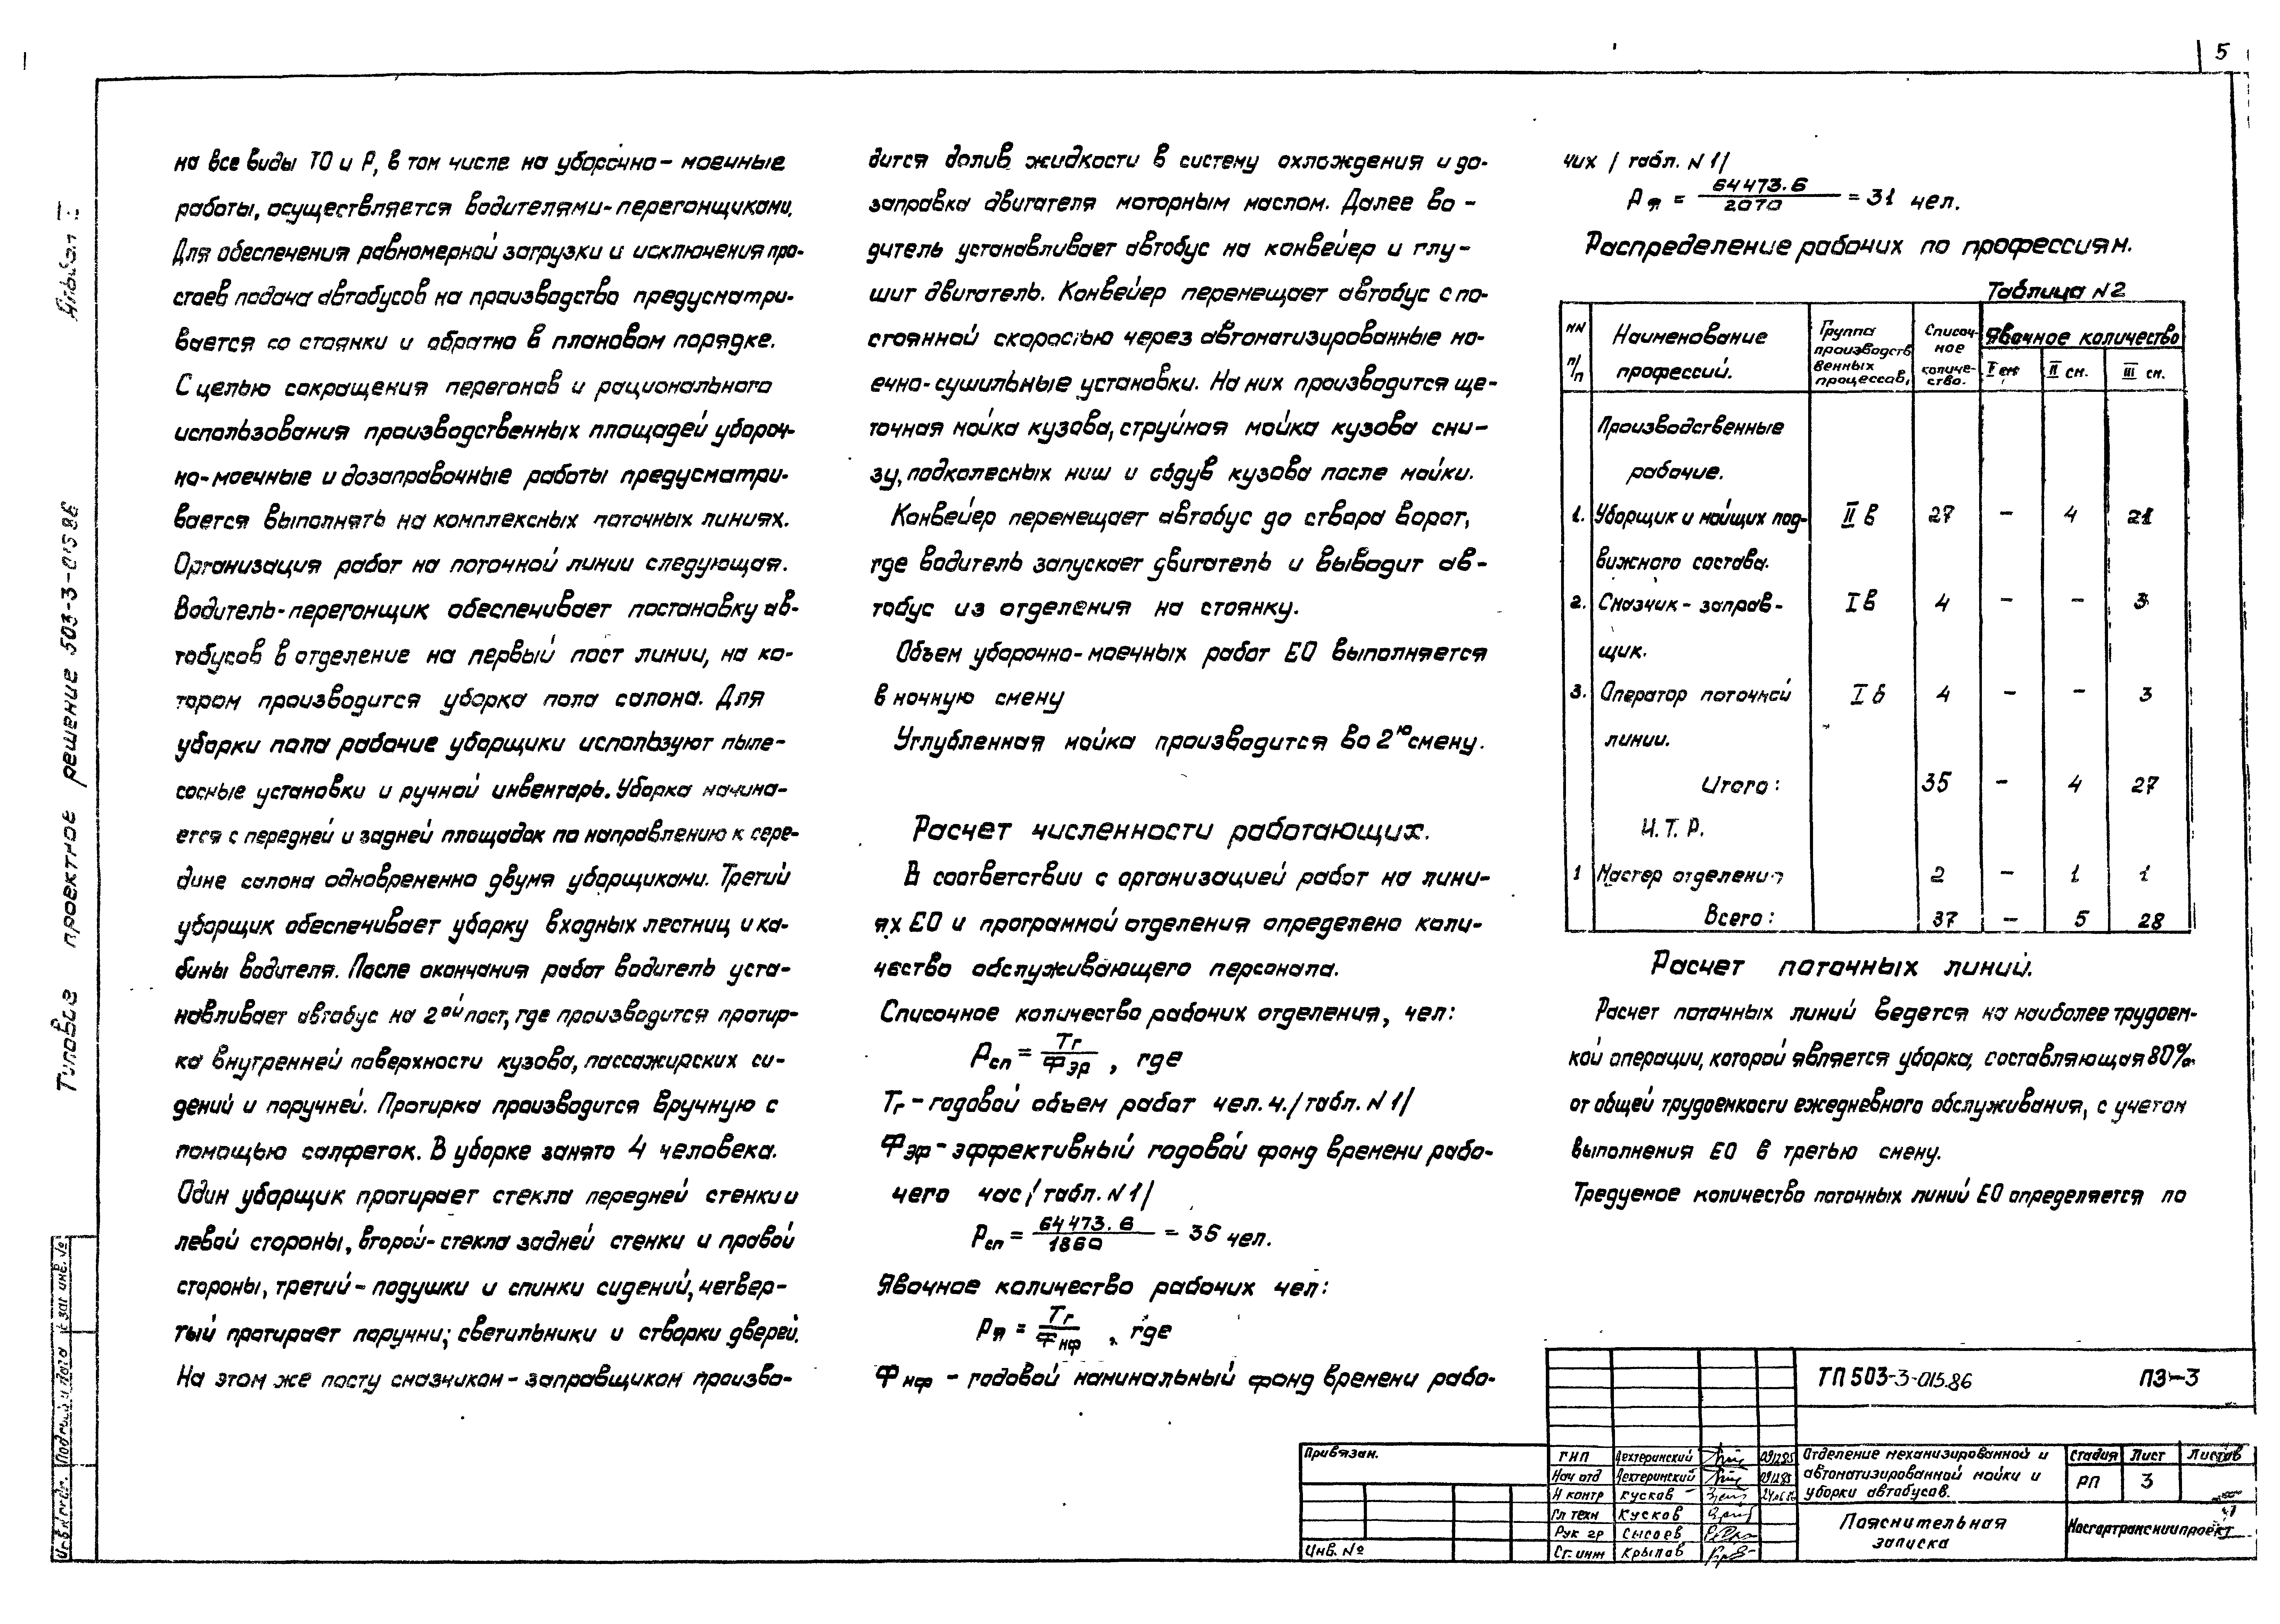 5
на все виды ТО и Р, в том числе на уборочно-моечные
работы, осуществляется водителями-перегонщиками.
Для обеспечения равномерной загрузки и исключения про-
стоев подача автобусов на производство предусматри-
вается со стоянки и обратно в плановом порядке.
С целью сокращения перегонов и рационального
использования производственных площадей убороч-
но-моечные и дозаправочные работы предусматри-
вается выполнять на комплексных поточных линиях.
Организация работ на поточной линии следующая.
Водитель-перегонщик обеспечивает постановку ав-
тобусов в отделение на первый пост линии, на ко-
тором производится уборка пола салона. Для
уборки пола рабочие уборщики используют пыле-
сосные установки и ручной инвентарь. Уборка начина-
ется с передней и задней площадок по направлению к сере-
дине салона одновременно двумя уборщиками. Третий
уборщик обеспечивает уборку входных лестниц и ка-
бины водителя. После окончания работ водитель уста-
навливает автобус на 2ой пост, где производится протир-
ка внутренней поверхности кузова, пассажирских си-
дений и поручней. Протирка производится вручную с
помощью салфеток. В уборке занято 4 человека.
Один уборщик протирает стекла передней стенки и
левой стороны, второй-стекла задней стенки и правой
стороны, третий-подушки и спинки сидений, четвер-
тый протирает поручни; светильники и створки дверей.
На этом же посту смазчиком-заправщиком произво-
дится долив жидкости в систему охлождения и до-
заправка двигателя моторным маслом. Далее во-
дитель устанавливает автобус на конвейер и глу-
шит двигатель. Конвейер перемещает автобус с по-
стоянной скоростью через автоматизированные мо-
ечно-сушильные установки. На них производится ще-
точная мойка кузова, струйная мойка кузова сни-
зу, подколесных ниш и обдув кузова после мойки.
Конвейер перемещает автобус до створа ворот,
где водитель запускает двигатель и выводит ав-
тобус из отделения на стоянку.
Объем уборочно-моечных работ ЕО выполняется
в ночную смену
Углубленная мойка производится во 2ю смену.
Расчет численности работающих.
В соответствии с организацией работ на лини-
ях ЕО и программой отделения определено коли-
чество обслуживающего персонала.
Списочное количество рабочих отделения, чел:
Рсп = Тг / Фэр , где
Тг - годовой объем работ чел. ч. /табл. N 1/
Фэр - эффективный годовой фонд времени рабо-
чего час /табл. N 1/
Рсп = 64473.6 / 1860 = 35 чел.
Явочное количество рабочих чел:
Ря = Тг / Фнф , где
Фнф - годовой номинальный фонд времени рабо-
чих /табл. N 1/
Ря = 64473.6 / 2070 = 31 чел.
Распределение рабочих по профессиям.
Таблица N2
NN п/п | Наименование профессий. | Группа производственных процессов, | Списочное количество. | Явочное количество I см | II см. | III см.
Производственные
рабочие.
1. Уборщик и мойщих под- II в 27 - 4 21
вижного состава.
2. Смазчик-заправ- I в 4 - - 3
щик.
3. Оператор поточной I в 4 - - 3
линии.
Итого: 35 - 4 27
И. Т. Р.
1 Мастер отделения 2 - 1 1
Всего: 37 - 5 28
Расчет поточных линий.
Расчет поточных линий ведется на наиболее трудоем-
кой операции, которой является уборка, составляющая 80%
от общей трудоемкости ежедневного обслуживания, с учетом
выполнения ЕО в третью смену.
Тредуемое количество поточных линий ЕО определяется по
Альбом I
Типовое проектное решение 503-3-015.86
Привязан.
Инв. №
ГИП Дехтеринский 091285
Нач отд Дехтеринский 091285
Н контр Кусков
Гл техн Кусков
Рук гр Сысоев
Ст. инж Крылов
ТП 503-3-015.86 ПЗ-3
Отделение механизированной и
автоматизированной мойки и
уборки автобусов.
Стадия Лист Листов
РП 3
Пояснительная
записка
Мосгортрансниипроект